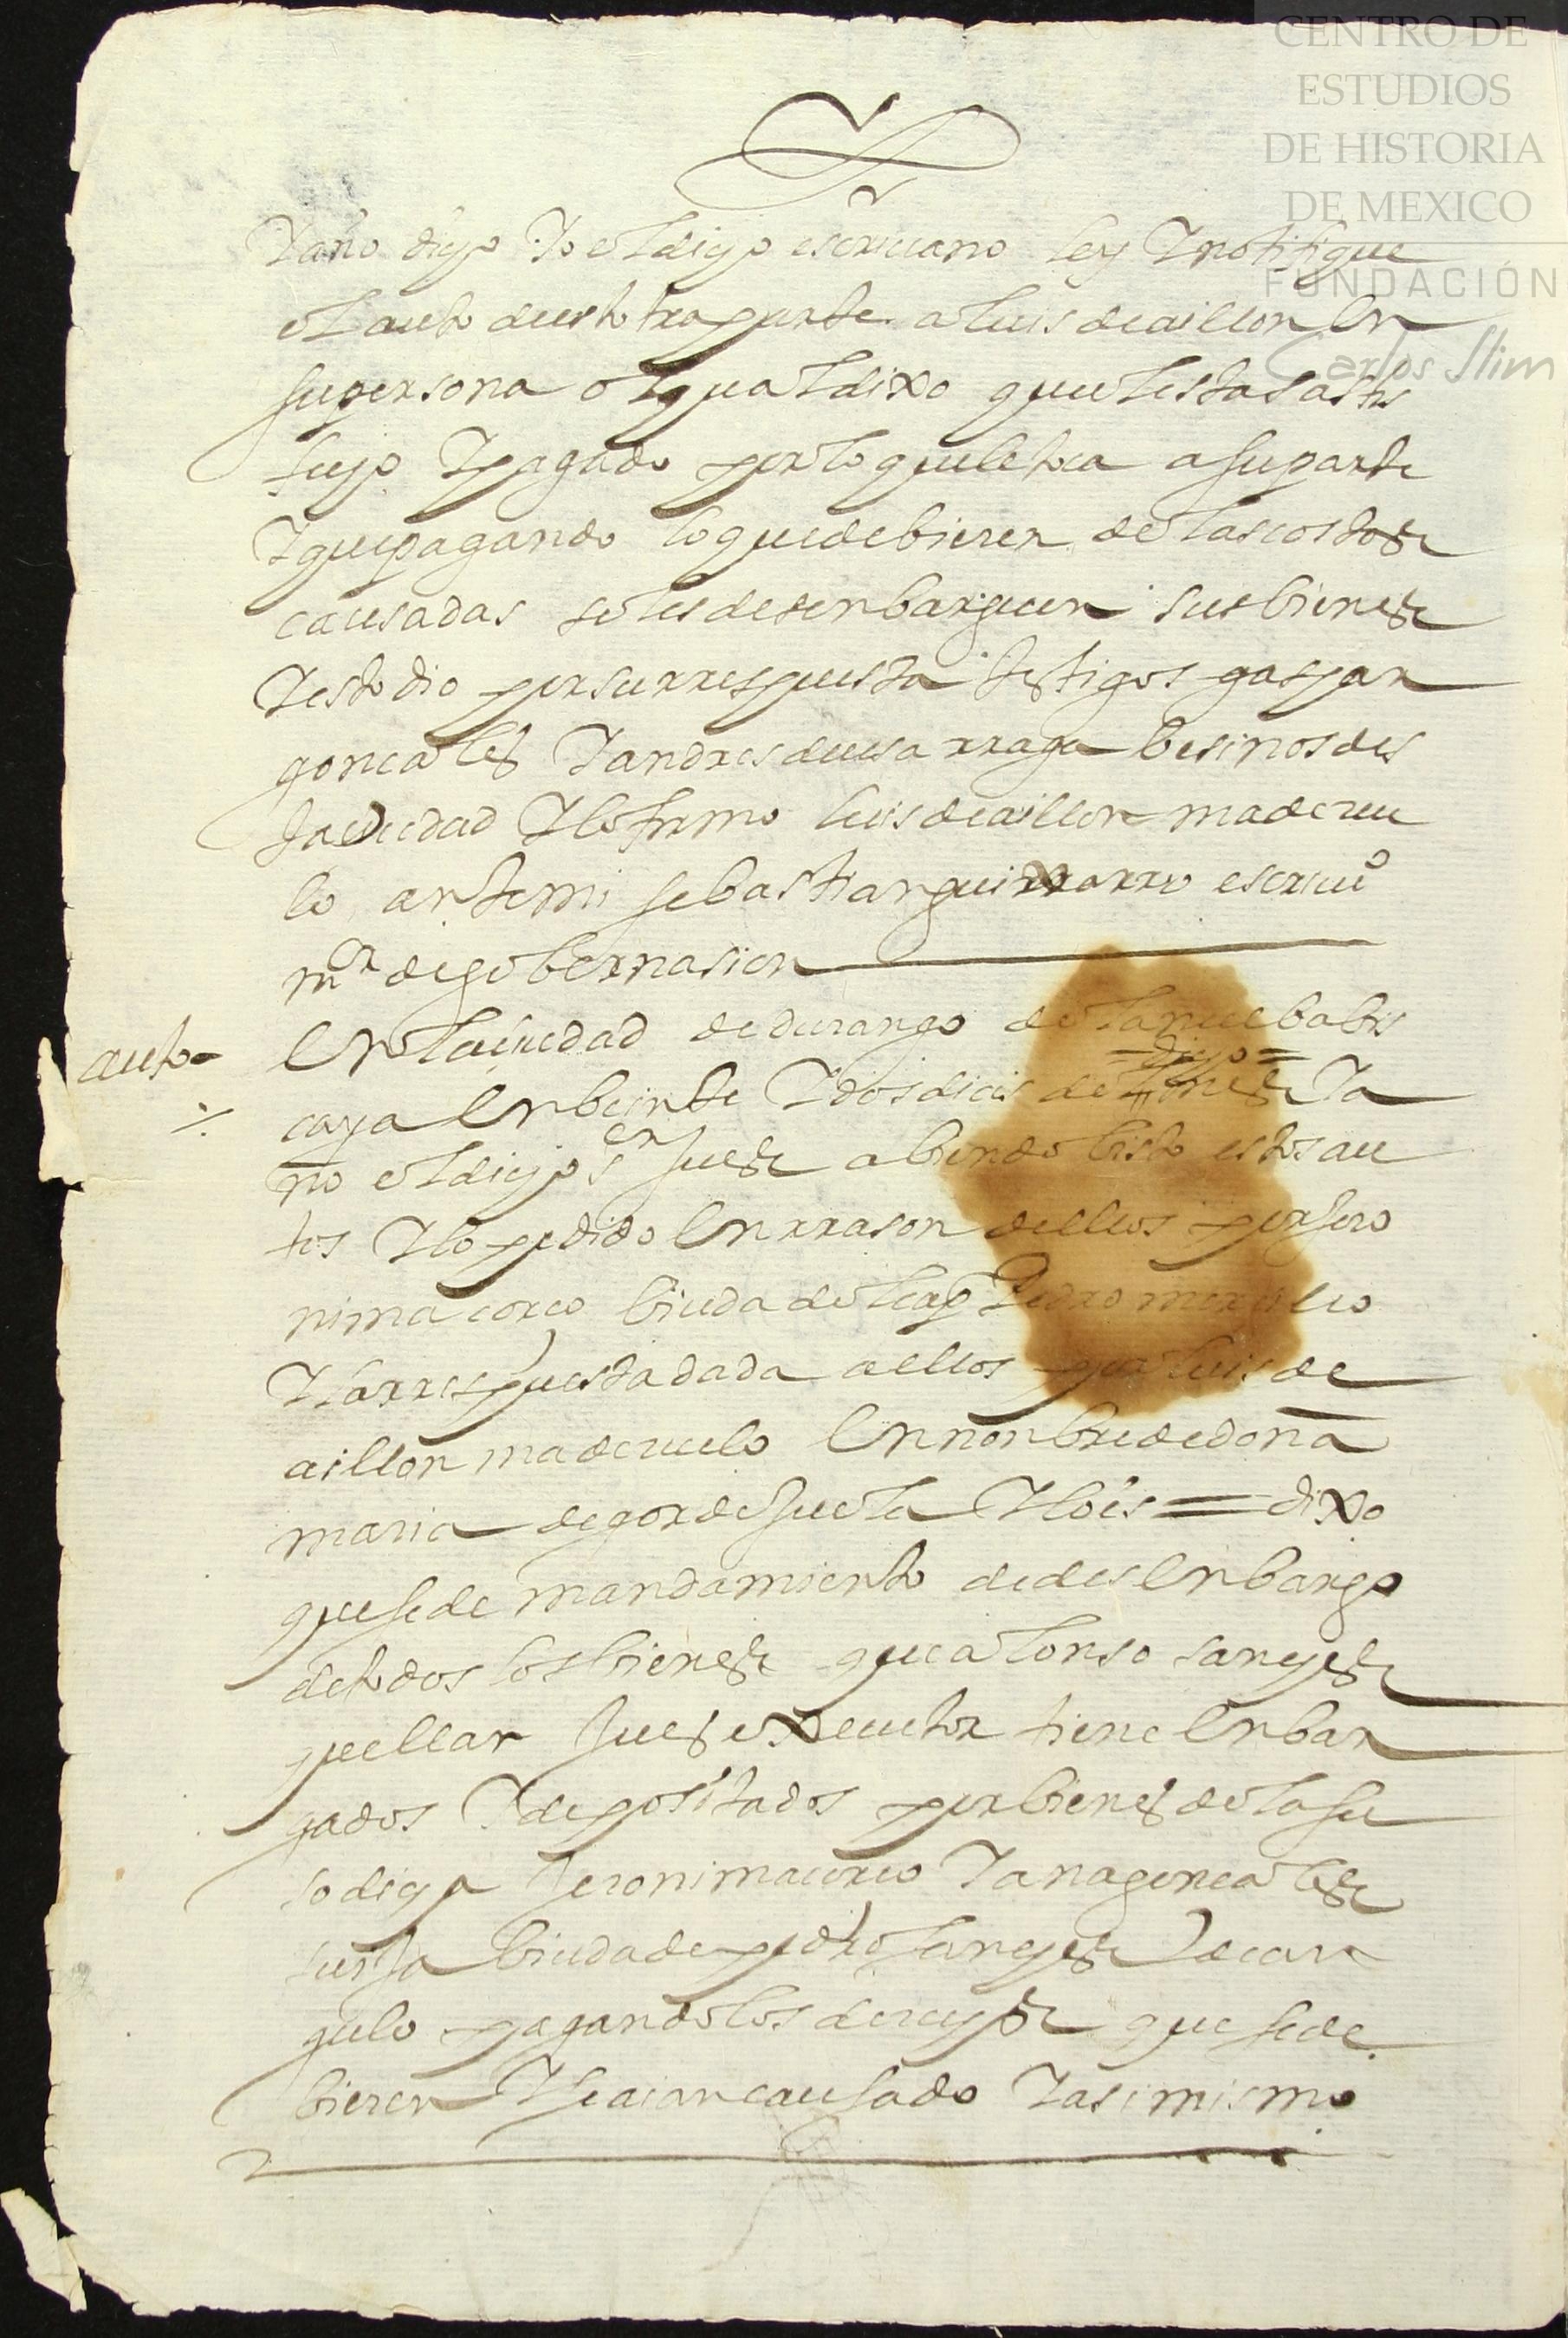 CENTRO DE
ESTUDIOS
DE HISTORIA
DE MEXICO
FUNDACIÓN
Carlos Slim
Y año dicho Yo el dicho escriuano ley Y notifique
el auto de esta otra parte a luis de aillon En
su persona el qual dixo que le esta satis
fecho Y pagado por lo que le toca a su parte
Y que pagando lo que debieren de las costas
causadas se les desenbarguen sus bienes
Y esto dio por su rrespuesta testigos gaspar
goncales Y andres de uisarraga besinos des
ta ciudad Y lo firmo luis de aillon maderue
lo ante mi sebastian guixarro escriuº
mᵒʳ de gobernasion
auto
En la ciudad de durango de la nueba bis
caya En beinte Y dos dias del mes Y a
= dicho =
ño el dicho sᵒʳ jues abiendo bisto estos au
tos Y lo pedido En rrason dellos por jero
nima corco biuda del cap Pedro morcillo
Y la rrespuesta dada a ellos por luis de
aillon maderuelo En nonbre de doña
maria de gordejuela Ybois = dixo
que se de mandamiento de desEnbargo
de todos los bienes que alonso sanches
quellar jues executor tiene Enbar
gados Y depositados por bienes de la su
sodicha jeronima corco Y ana goncales
su ija biuda de pedro sanches de can
gulo pagando los derechos que se de
bieren Y se aian causado Y asimismo